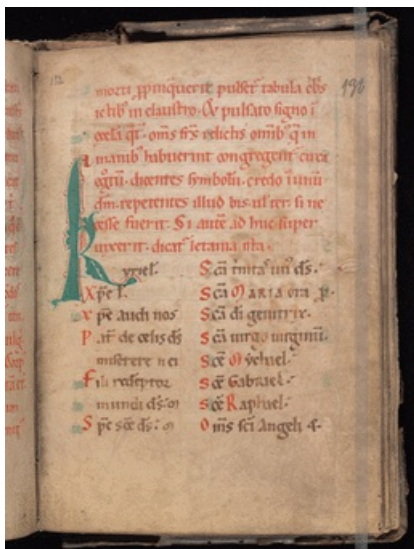 morti ꝓpinquerit pulset͛ tabula
in claustro. Et pulsato signo ī
oms fr̄s relictis omib; q̄ in
manib; habuerint congregent͛ circa
dicentes symbolū. credo ī unū
dm̄. repetentes illud bis ul' ter. si ne
cesse fuerit. Si aute ad huc super
uixerit. dicat͛ letania ista.
Kyriel'.
Xp̄e l.
xp̄e audi nos
Pat̄ de celis ds̄
miserere nei
Fili redēptor
mundi ds̄. m
Spc̄ sc̄e ds̄. m
Sc̄a trinitas un' ds̄.
Sc̄a MARIA ora ꝓ.
Sc̄a di genitrix.
Sc̄a uirgo uirginū.
Sc̄e Mychael.
Sc̄e Gabrael.
Sc̄e Raphael.
Oms sc̄i Angeli &.